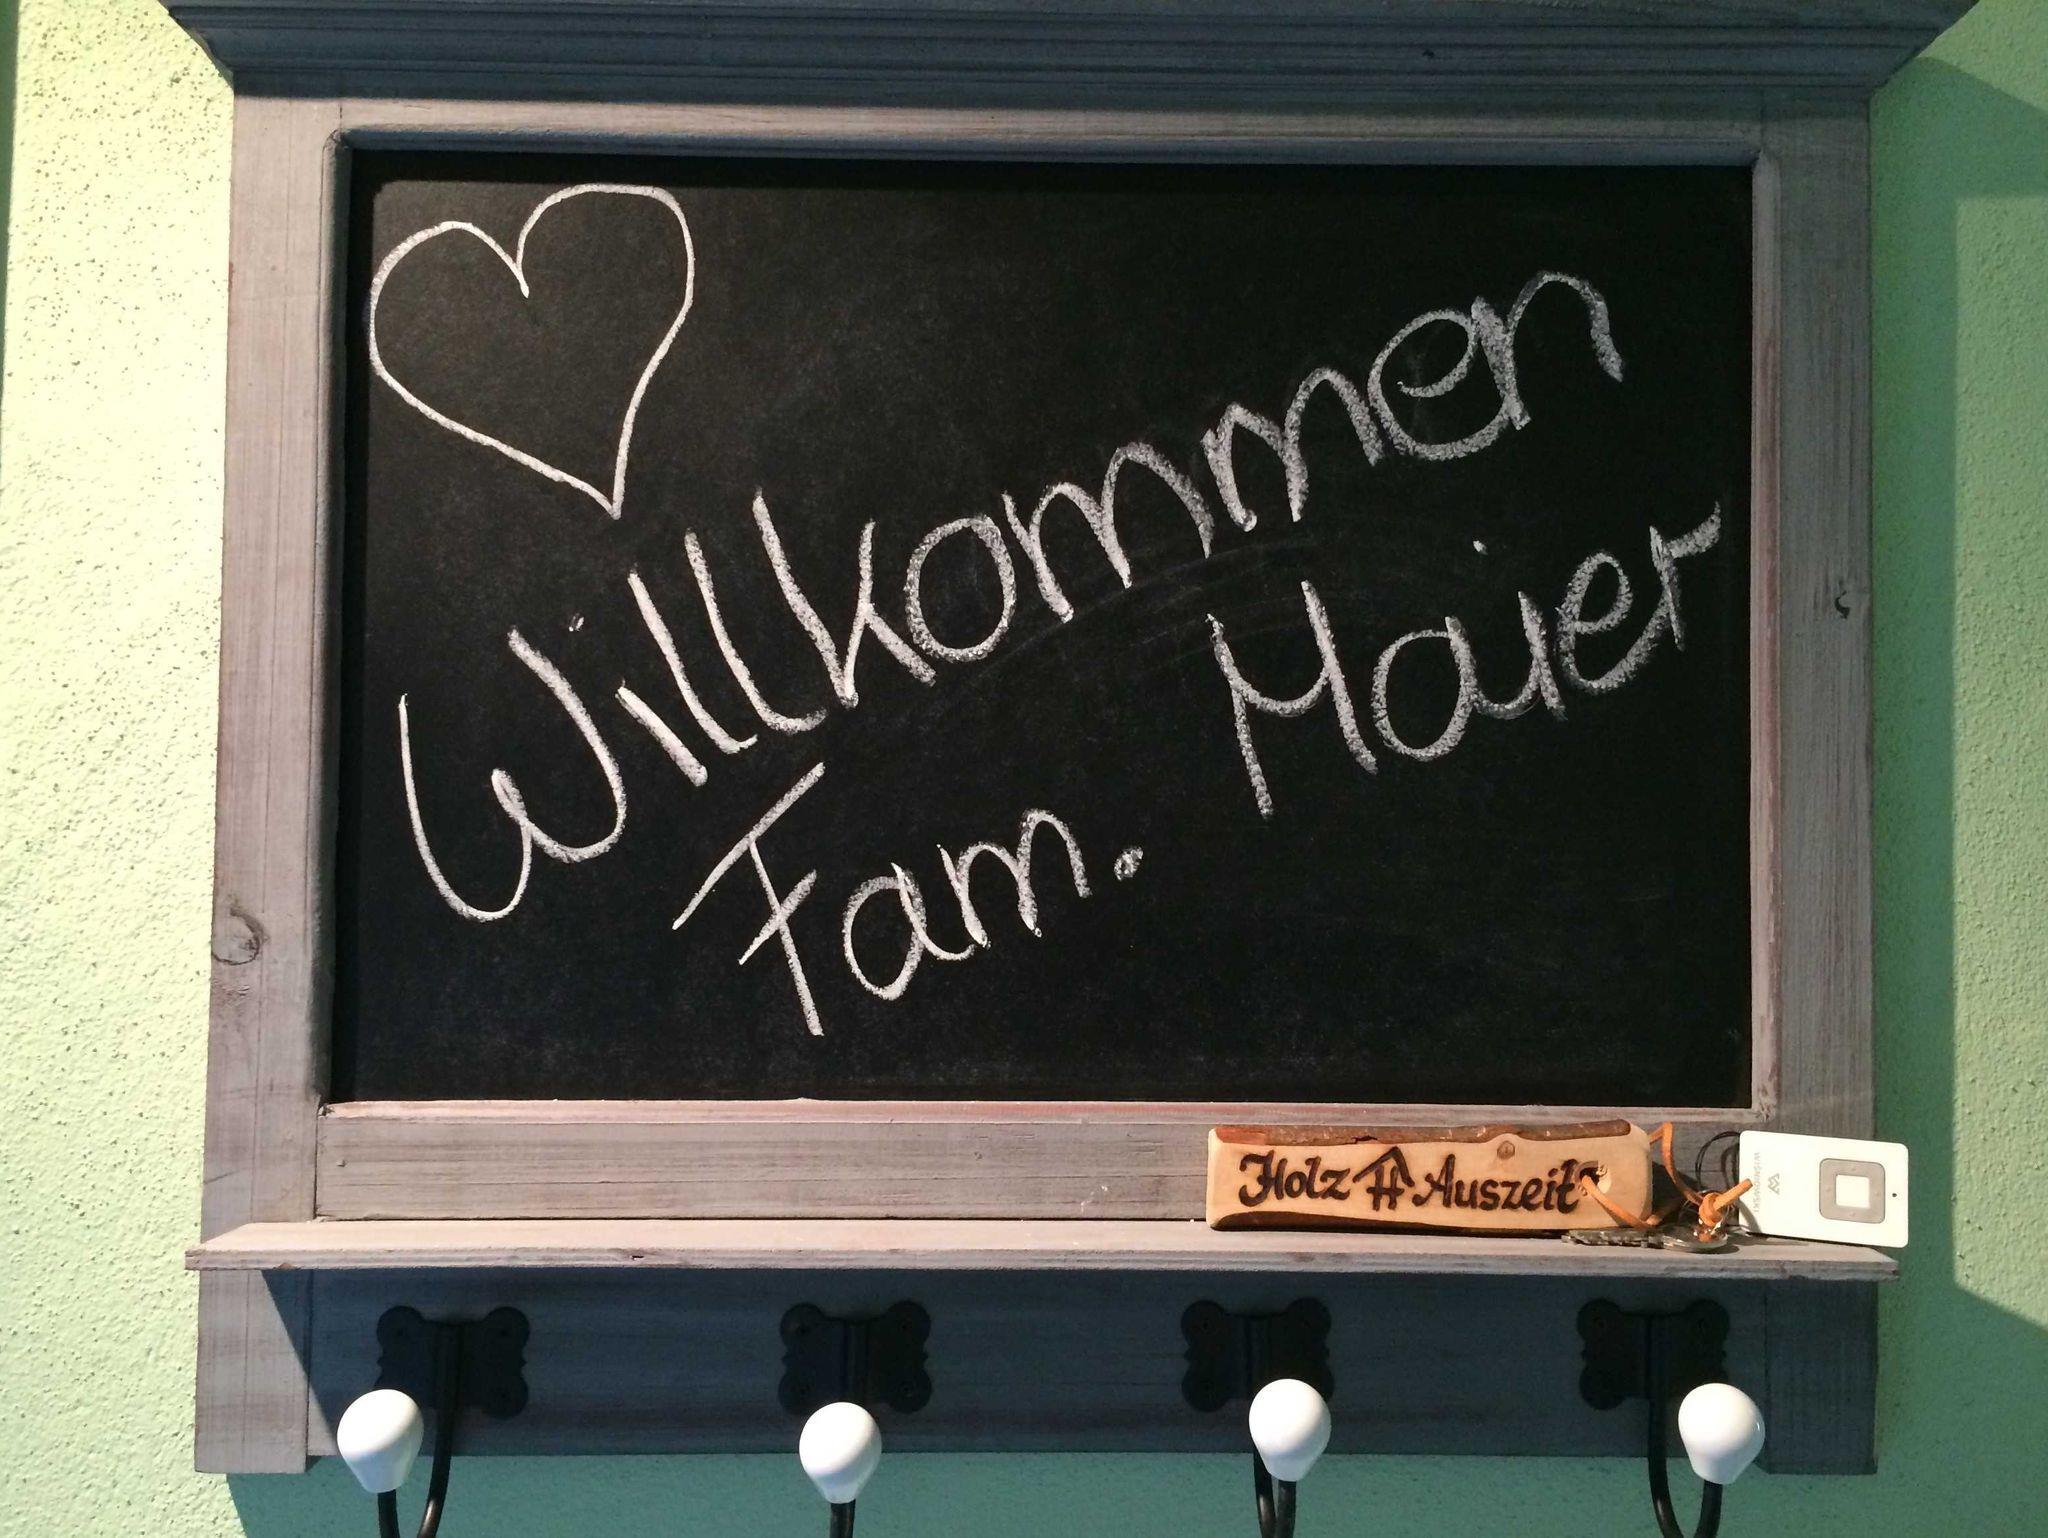 Willkommen
Fam. Maier
Holz Auszeit
WIŚNIOWSKI